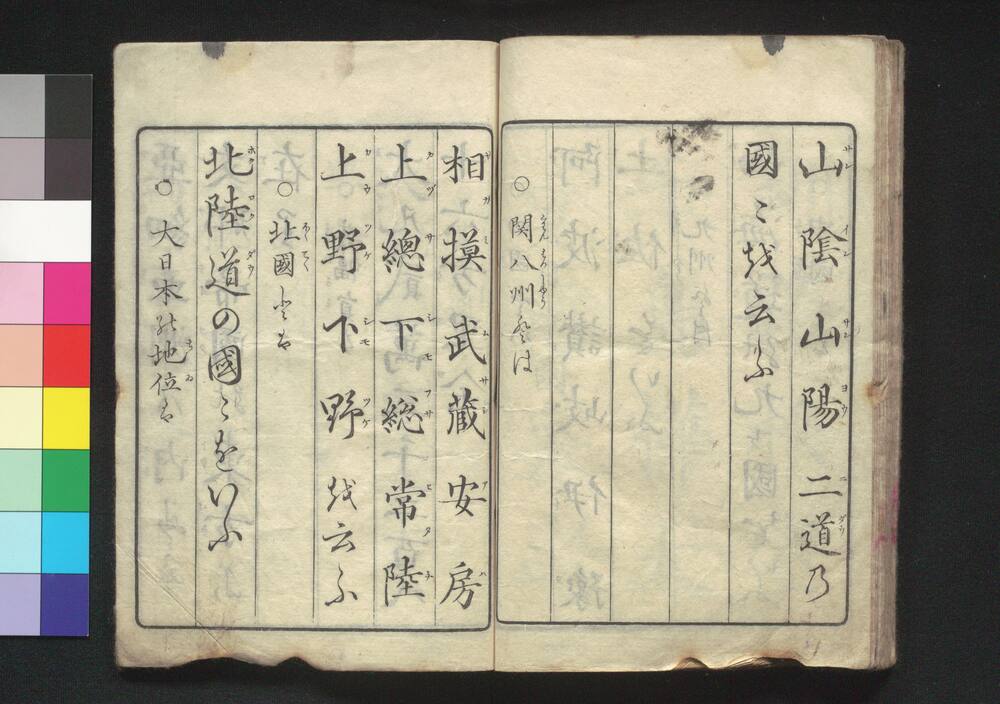 山陰山陽二道の
國〻を云ふ
○関八州とは
相摸武蔵安房
上總下総常陸
上野下野を云ふ
○北國とは
北陸道の國〻をいふ
○大日本の地位は